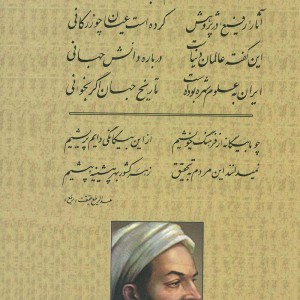 آثار رفیع در پژوهش کرده است عیان چو زرکانی
این گفته عالمان دنیاست درباره دانش جهانی
ایران به علوم شهره بوده است تاریخ جهان اگر بخوانی
چو با بیگانه از فرهنگ خویشیم از این بیگانگی دایم پریشیم
نمیدانند این مردم به تحقیق ز هر کشور بهر پیشینه پیشیم